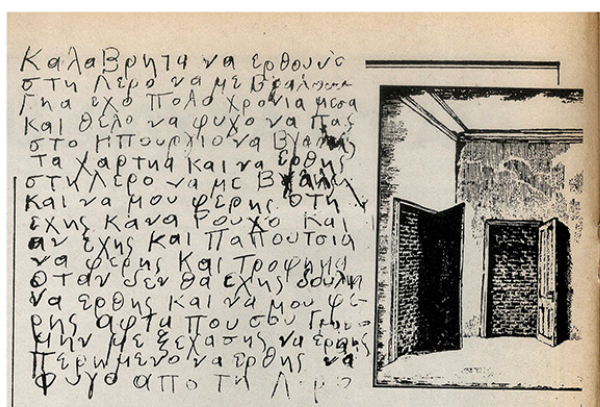 Καλαβρητα να ερθουνε
στη Λερο να με βγαλουνε
Γηα εχο Πολα χρονια μεσα
και θελο να φυγο να πας
στο Ηπουργιο να βγαλης
τα χαρτηα και να ερθης
στη Λερο να με βγαλης
και να μου φερης οτη
εχης κανα Ρουχο και
αν εχης και Παπουτσια
να φερης και Τροφημα
οταν δεν θα εχης δουλια
να ερθης και να μου φε-
ρης αφτα που σου Γραφο
μην με ξεχασης να ερθης
Περημενο να ερθης να
φυγο απο τη Λερο